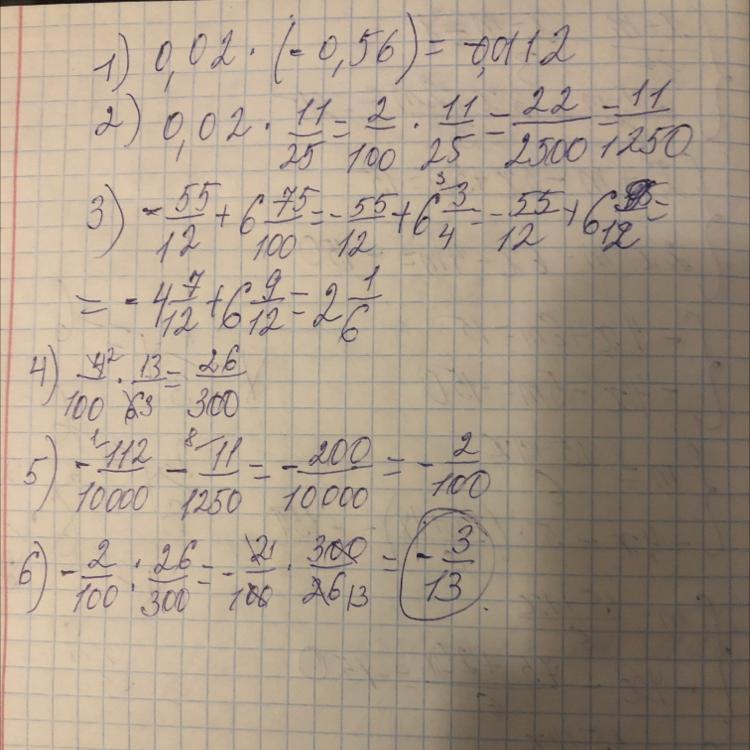 1) 0,02 · (- 0,56) = -0,0112
2) 0,02 · 11/25 = 2/100 · 11/25 = 22/2500 = 11/1250
3) - 55/12 + 6 75/100 = - 55/12 + 6 3/4 = - 55/12 + 6 9/12 =
= - 4 7/12 + 6 9/12 = 2 1/6
4) 4 2/100 · 13/6 3 = 26/300
5) - 1 112/10000 - 8 11/1250 = - 200/10000 = - 2/100
6) - 2/100 : 26/300 = - 2/100 · 300/26 13 = - 3/13